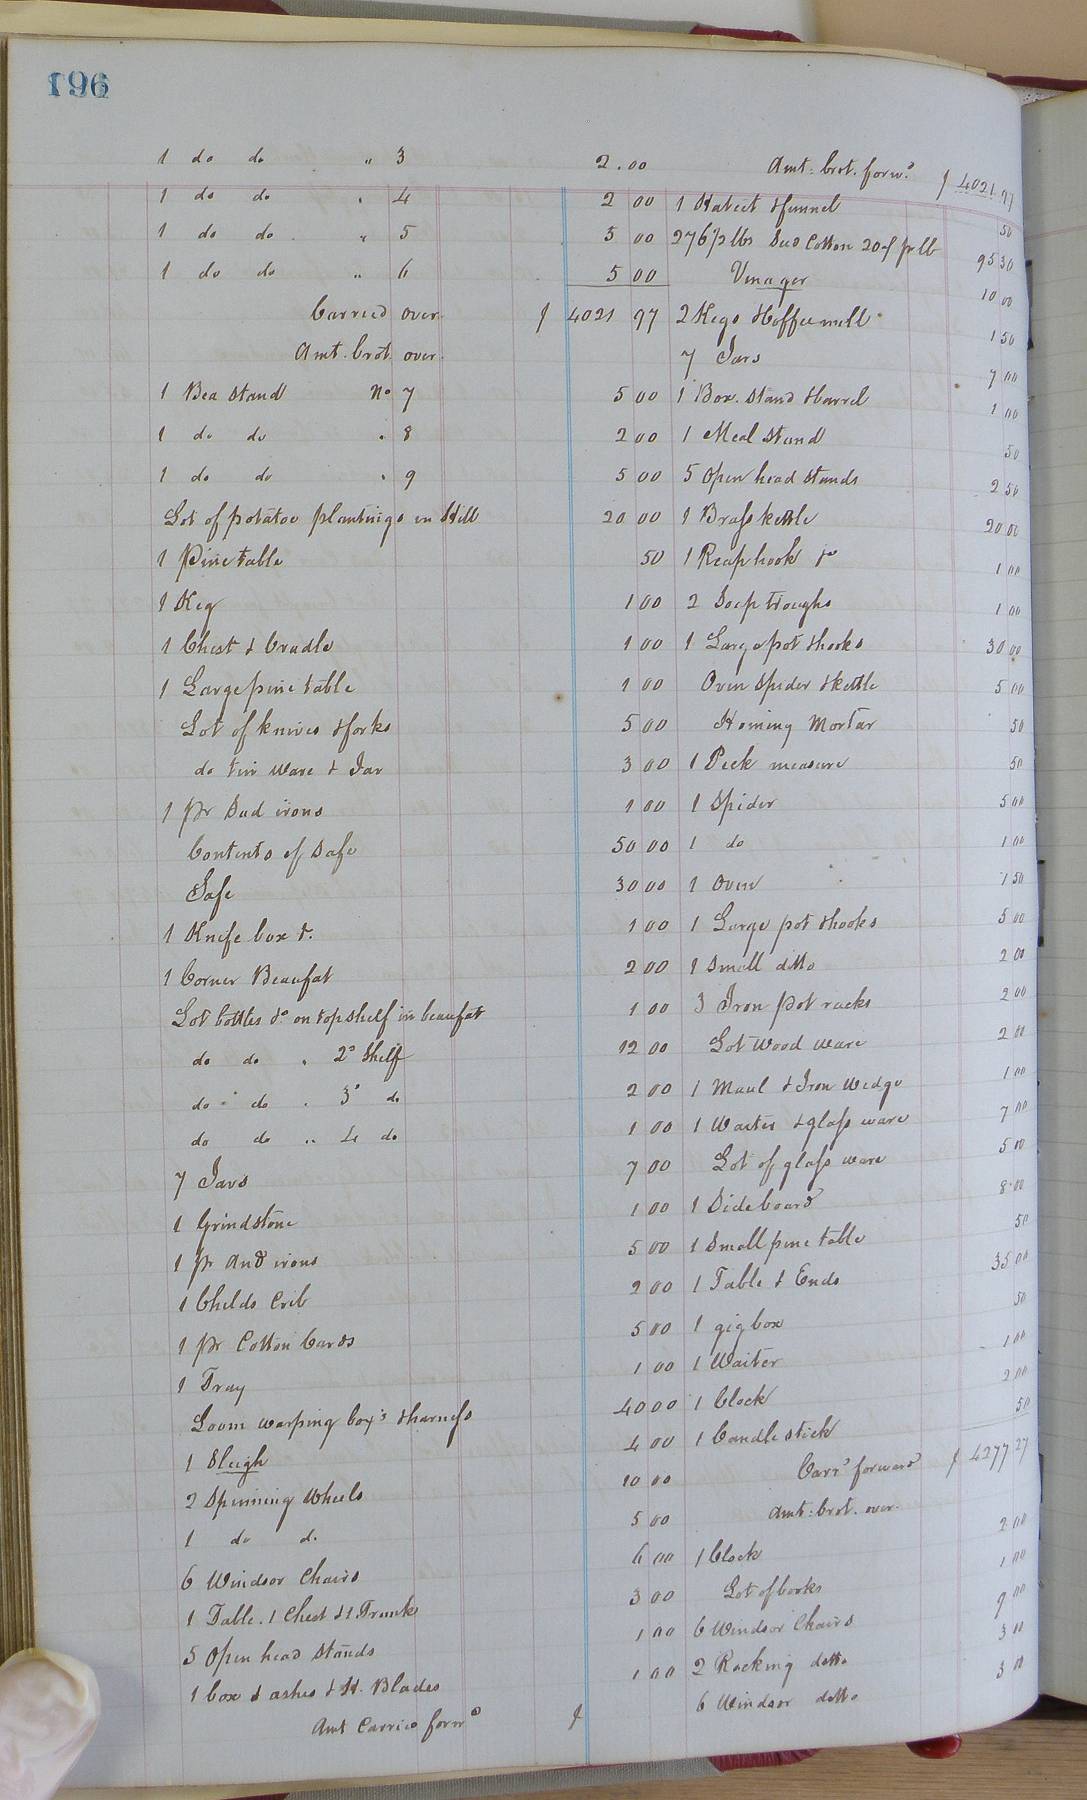 196
1 do do " 3 2.00
1 do do " 4 2 00
1 do do " 5 3 00
1 do do " 6 5 00
Carried over $ 4021 97
Amt. brot. over.
1 Bea stand No 7 5 00
1 do do " 8 2 00
1 do do " 9 5 00
Lot of potatoe plantings in Hill 20 00
1 Pine table 50
1 Keg 1 00
1 Chest & Cradle 1 00
1 Large pine table 1 00
Lot of knives & forks 5 00
do tin ware & Jar 3 00
1 pr Sad irons 1 00
Contents of Safe 50 00
Safe 30 00
1 Knife box &. 1 00
1 Corner Beaufat 2 00
Lot bottles &c on top shelf in beaufat 1 00
do do " 2d Shelf 12 00
do do " 3d do 2 00
do do " 4 do 1 00
7 Jars 7 00
1 Grindstone 1 00
1 pr And irons 5 00
1 Childs Crib 2 00
1 pr Cotton Cards 5 00
1 Tray 1 00
Loom warping boxs & harness 40 00
1 Sleigh 4 00
2 Spinning Wheels 10 00
1 do d. 5 00
6 Windsor Chairs 6 00
1 Table. 1 Chest & 1 Trunk 3 00
5 Open head Stands 1 00
1 box & ashes & St. Blades 1 00
Amt Carried forwd $
Amt. brot. forwd $ 4021 97
1 Hatect & funnel 50
276 1/2 lbs Sed Cotton 20cf pr lb 95 30
Vinager 10 00
2 Kegs & Coffee mill 1 50
7 Jars 7 00
1 Box. Stand & barrel 1 00
1 Meal Stand 50
5 Open head Stands 2 50
1 Brass kettle 20 00
1 Reap hook &c 1 00
2 Soap troughs 1 00
1 Large pot & hooks 30 00
Oven Spider & kettle 5 00
Homing Mortar 50
1 Peck measure 50
1 Spider 5 00
1 do 1 00
1 Oven 1 50
1 Large pot & hooks 5 00
1 Small ditto 2 00
3 Iron pot racks 2 00
Lot wood ware 2 00
1 Maul & Iron Wedge 1 00
1 Waiter & glass ware 7 00
Lot of glass ware 5 00
1 Sideboard 8 00
1 Small pine table 50
1 Table & Ends 35 00
1 gig box 50
1 Waiter 1 00
1 Clock 2 00
1 Candle stick 50
Carrd forward $ 4277 27
Amt. brot. over.
1 Clock 2 00
Lot of books 1 00
6 Windsor Chairs 9 00
2 Rocking ditto 3 00
6 Windsor ditto 3 00